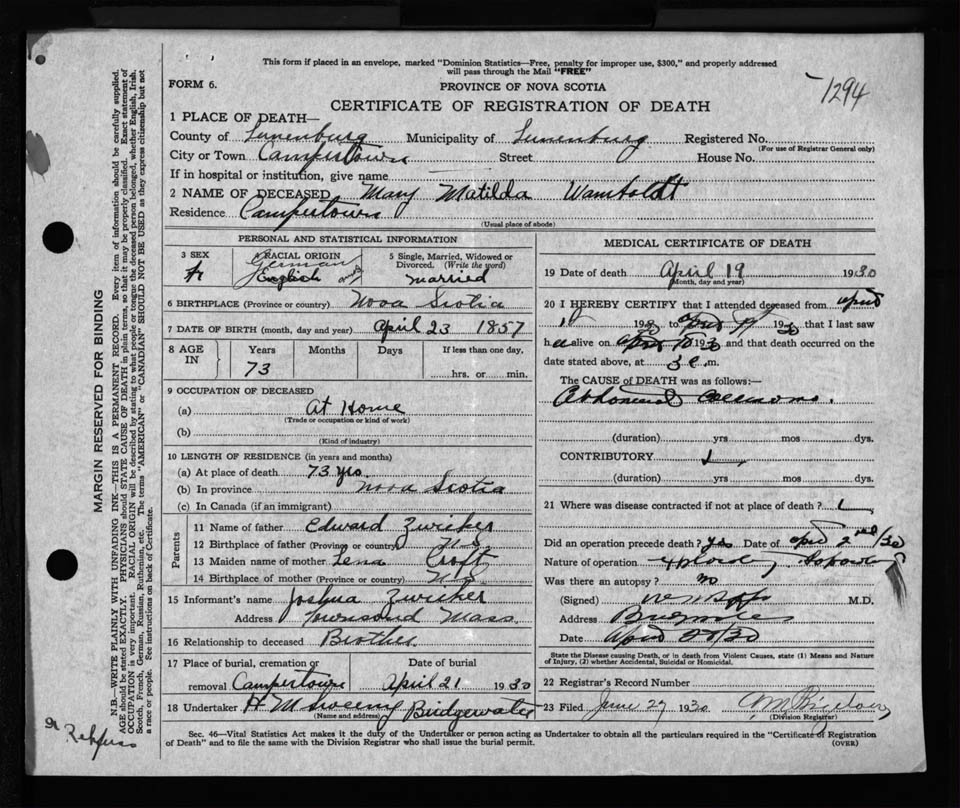 This form if placed in an envelope, marked "Dominion Statistics—Free, penalty for improper use, $300," and properly addressed
will pass through the Mail "FREE"
FORM 6.
PROVINCE OF NOVA SCOTIA
1294
CERTIFICATE OF REGISTRATION OF DEATH
1 PLACE OF DEATH—
County of Lunenburg Municipality of Lunenburg Registered No.
(For use of Registrar General only)
City or Town Campertown Street House No.
If in hospital or institution, give name
2 NAME OF DECEASED Mary Matilda Wamboldt
Residence Campertown
(Usual place of abode)
PERSONAL AND STATISTICAL INFORMATION
3 SEX
RACIAL ORIGIN
German
English
5 Single, Married, Widowed or
Divorced. (Write the word)
married
6 BIRTHPLACE (Province or country) Nova Scotia
7 DATE OF BIRTH (month, day and year) April 23 1857
8 AGE IN
Years Months Days If less than one day,
73 hrs. or min.
9 OCCUPATION OF DECEASED
(a) At Home
(Trade or occupation or kind of work)
(b)
(Kind of industry)
10 LENGTH OF RESIDENCE (in years and months)
(a) At place of death 73 yrs
(b) In province Nova Scotia
(c) In Canada (if an immigrant)
Parents
11 Name of father Edward Zwicker
12 Birthplace of father (Province or country) N.S.
13 Maiden name of mother Lena Croft
14 Birthplace of mother (Province or country) N.S.
15 Informant's name Joshua Zwicker
Address Townsend Mass
16 Relationship to deceased Brother
17 Place of burial, cremation or Date of burial
removal Campertown April 21 1930
18 Undertaker H M Sweeny Bridgewater
(Name and address)
MEDICAL CERTIFICATE OF DEATH
19 Date of death April 19 1930
(Month, day and year)
20 I HEREBY CERTIFY that I attended deceased from April
19 to April 19 1930 that I last saw
h alive on 1930 and that death occurred on the
date stated above, at 3 m.
The CAUSE of DEATH was as follows:—
Abdominal
(duration) yrs mos dys.
CONTRIBUTORY
(duration) yrs mos dys.
21 Where was disease contracted if not at place of death?
Did an operation precede death? yes Date of April 2nd/30
Nature of operation
Was there an autopsy? no
(Signed) M.D.
Address
Date April
State the Disease causing Death, or in death from Violent Causes, state (1) Means and Nature
of Injury, (2) whether Accidental, Suicidal or Homicidal.
22 Registrar's Record Number
23 Filed June 27 1930 C M Bigelow
(Division Registrar)
Sec. 46—Vital Statistics Act makes it the duty of the Undertaker or person acting as Undertaker to obtain all the particulars required in the "Certificate of Registration
of Death" and to file the same with the Division Registrar who shall issue the burial permit.
(OVER)
MARGIN RESERVED FOR BINDING
N.B.—WRITE PLAINLY WITH UNFADING INK—THIS IS A PERMANENT RECORD. Every item of information should be carefully supplied.
AGE should be stated EXACTLY. PHYSICIANS should STATE CAUSE OF DEATH in plain terms, so that it may be properly classified. Exact statement of
OCCUPATION is very important. RACIAL ORIGIN will be described by stating to what people or tongue the deceased person belonged, whether English, Irish,
Scotch, French, German, Russian, Ruthenian, etc. The terms "AMERICAN" or "CANADIAN" SHOULD NOT BE USED as they express citizenship but not
a race or people. See instructions on back of Certificate.